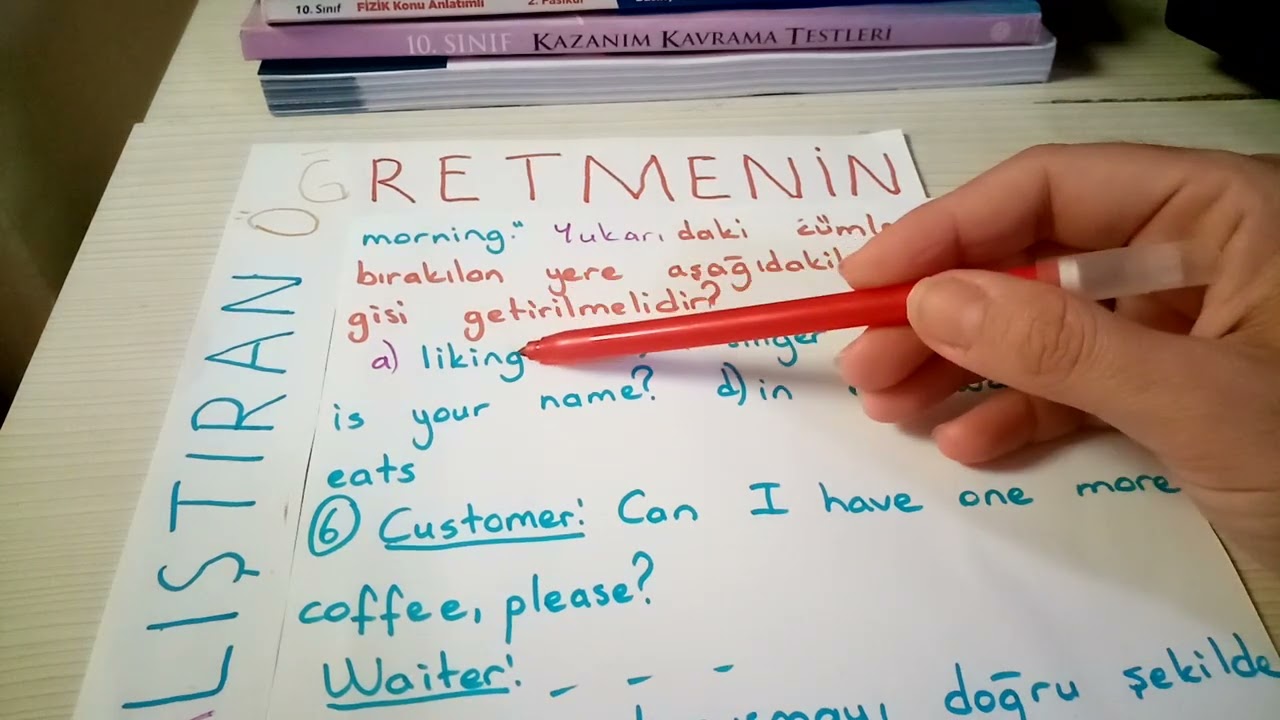 10. Sınıf FİZİK Konu Anlatımlı 2. Fasikül
10. SINIF KAZANIM KAVRAMA TESTLERİ
ÖĞRETMENİN
LIŞTIRAN
morning." Yukarıdaki cümle
bırakılan yere aşağıdakil
gisi getirilmelidir?
a) liking singer
is your name? d) in
eats
6 Customer: Can I have one more
coffee, please?
Waiter: _ _ _
doğru şekilde